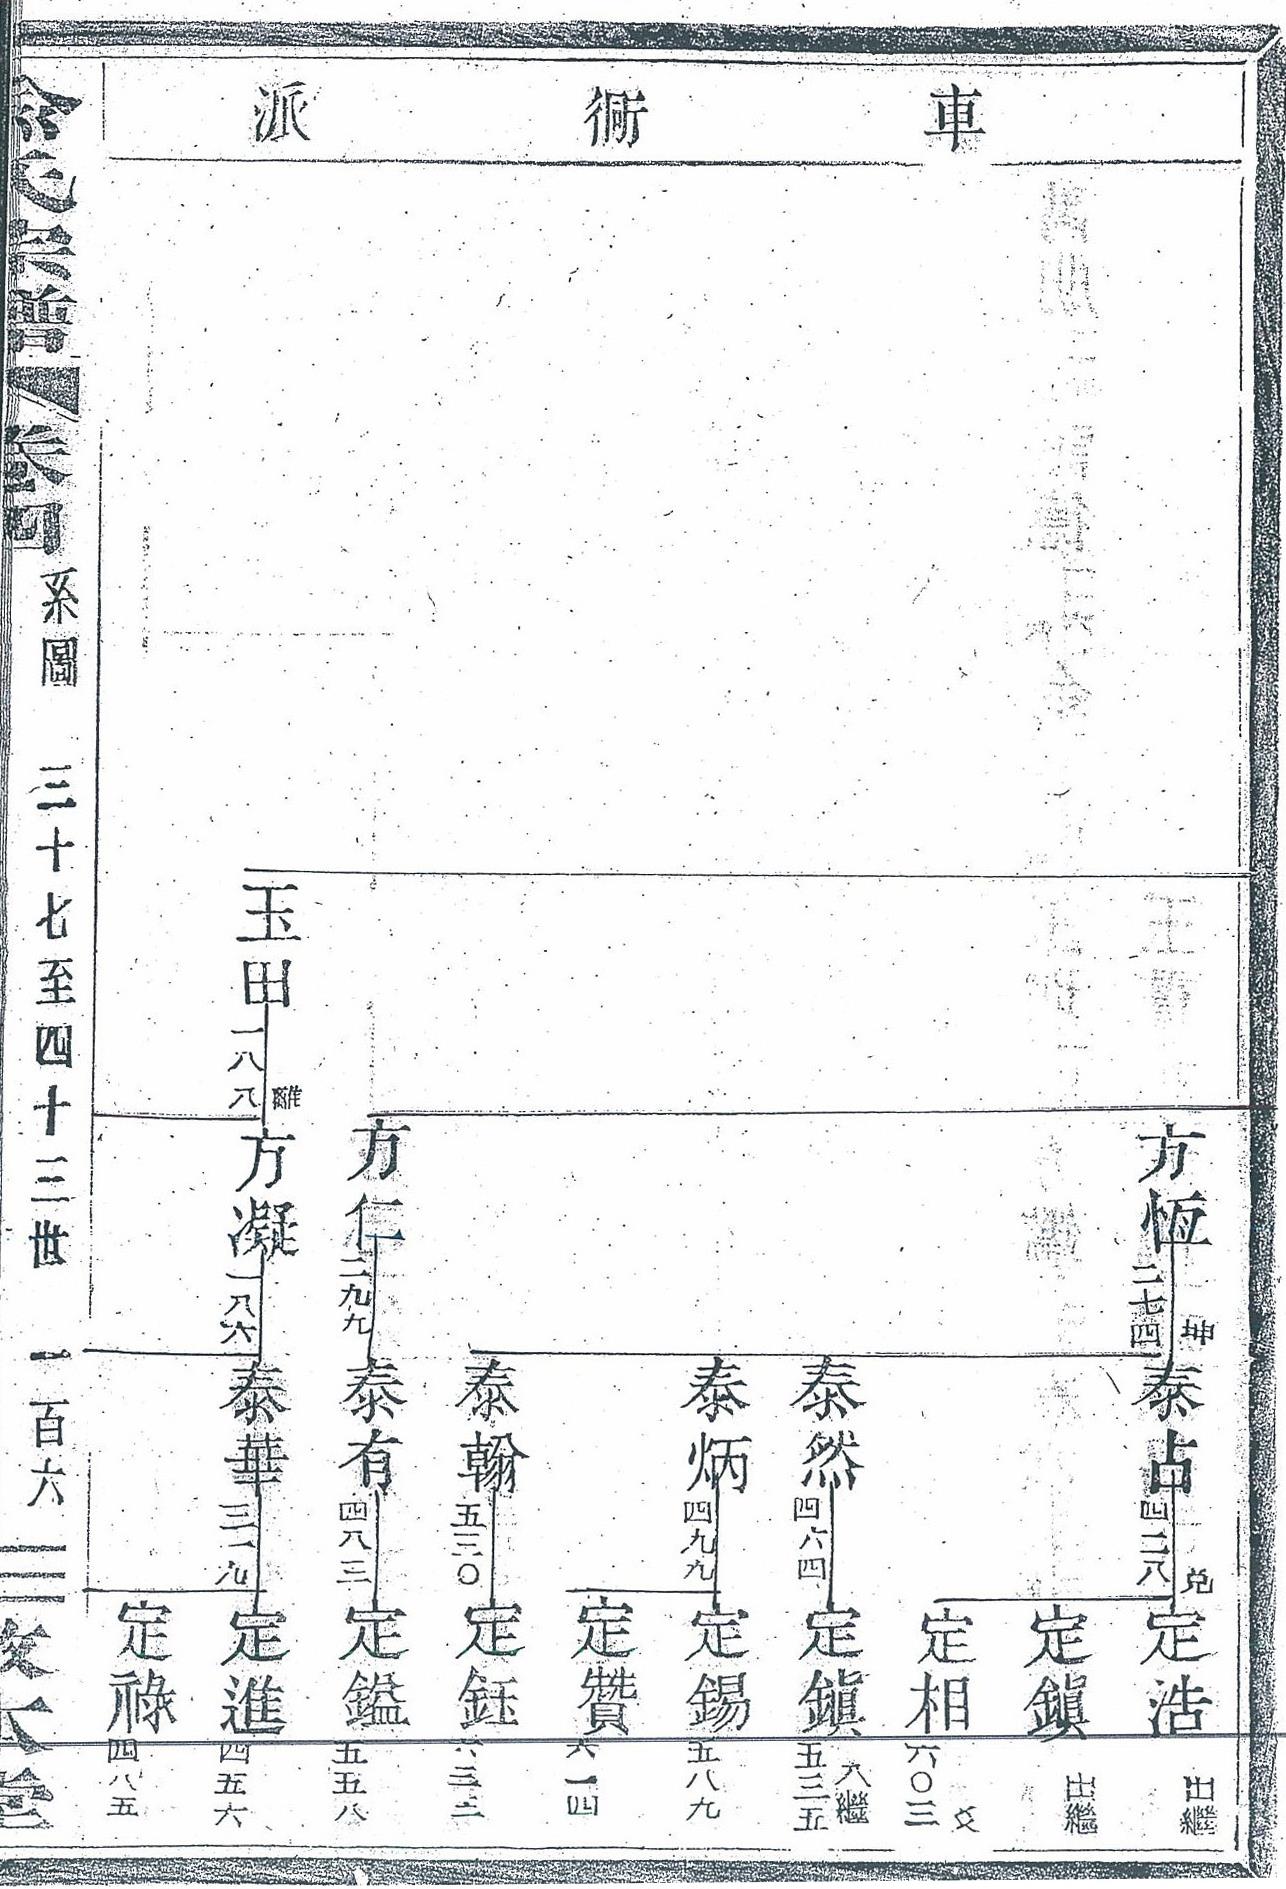 車衕派
方恆 二七四 坤
泰占 四二八 兌
定浩 出繼
定鎭 出繼
定相 六〇三 爻
泰然 四六四
定鎭 五三五 入繼
泰炳 四九九
定錫 五八九
定贊 六一四
泰翰 五三〇
定鈺 六三二
方仁 二九九
泰有 四八三
定鎰 五五八
玉田 一八八 離
方凝 一八六
泰華 三一九
定進 四五六
定祿 四八五
氏宗譜 卷四 系圖 三十七至四十三世 一百六